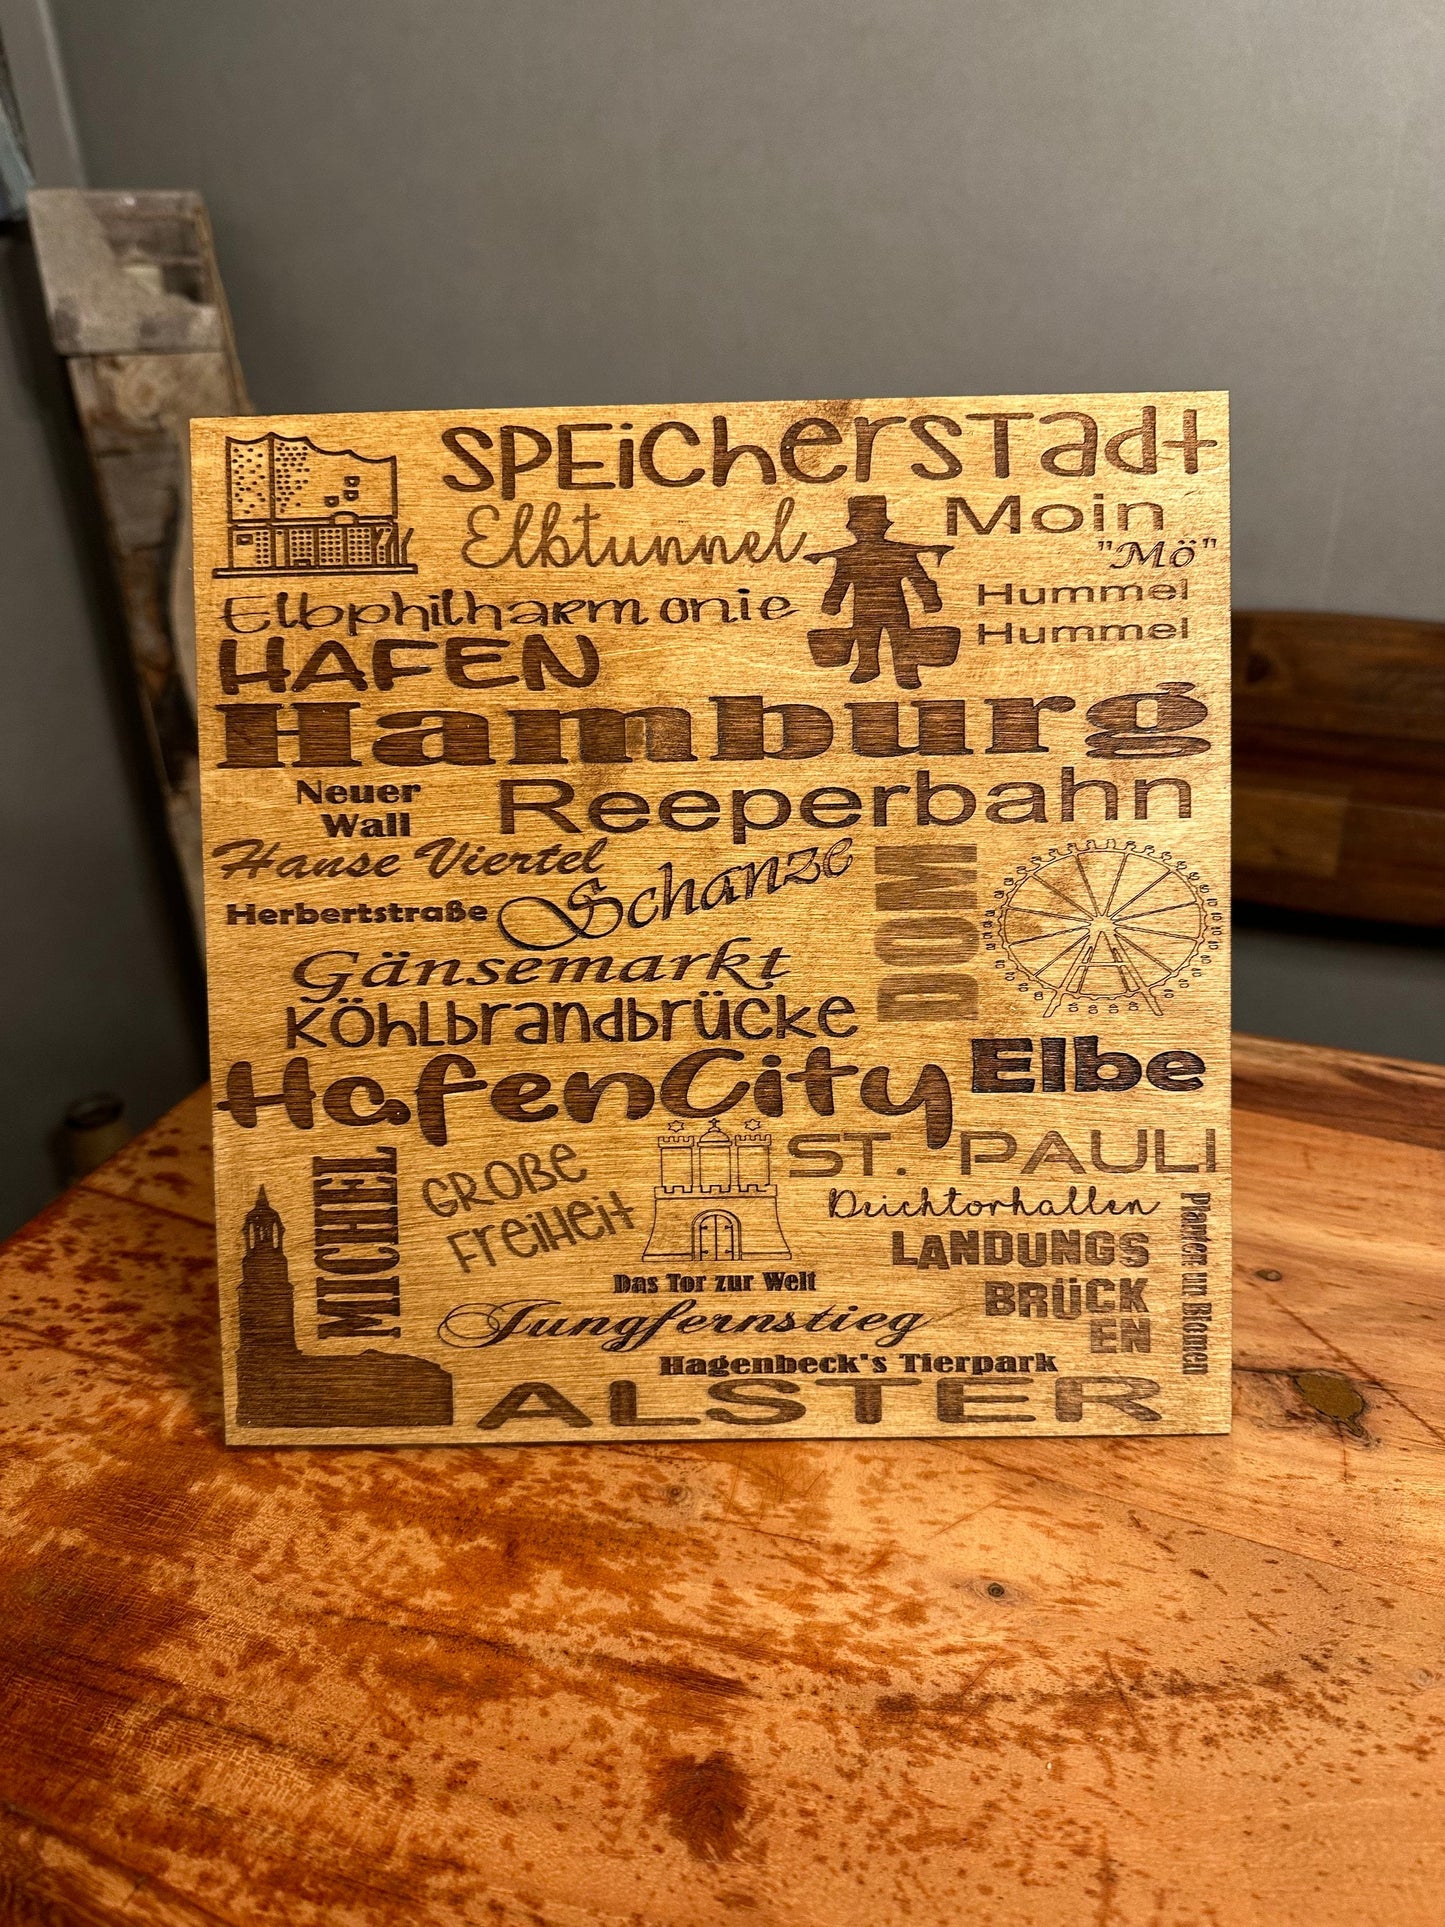 SPEicherstadt
Elbtunnel
Moin
"Mö"
Elbphilharmonie
Hummel
Hummel
HAFEN
Hamburg
Neuer
Wall
Reeperbahn
Hanse Viertel
Schanze
DOM
Herbertstraße
Gänsemarkt
Köhlbrandbrücke
HafenCity
Elbe
MICHEL
GROßE
FreiHeit
ST. PAULI
Deichtorhallen
LANDUNGS
BRÜCK
EN
Planten un Blomen
Das Tor zur Welt
Jungfernstieg
Hagenbeck's Tierpark
ALSTER